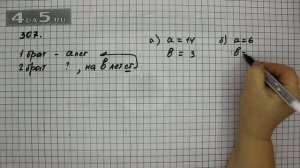 4 а 5 . ru
307.
1 брат - а лет
2 брат ? , на в лет ст.
а) а = 14
в = 3
б) а = 6
в =